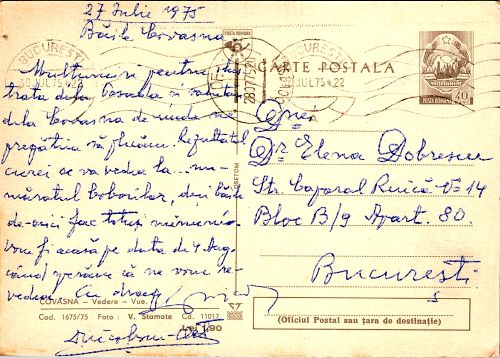 27 Iulie 1975
Băile Covasna
Mulțumiri pentru
trata dela Casala și
dela Covasna de unde ne
pregătim să plecăm. Rezultatul
curei se va vedea la ... nu-
măratul bobocilor, deși băile
de-aici fac totuși minuni.
Vom fi acasă pe data de 4 Aug.
când sperăm că ne vom re-
vedea. Cu drag
COVASNA - Vedere - Vue.
Cod. 1675/75 Foto: V. Stamate Cd. 11017
Lei 1,90
POSTA ROMANA
CARTE POSTALA
POSTA ROMANA 40
BUCURESTI
30 JUL 75
28.07.75
BUCURESTI
JUL 75 * 22
CRETOM
Dnei
Dr Elena Dobrescu
Str. Caporal Ruică No 14
Bloc B/9 Apart. 80.
București
(Oficiul Postal sau țara de destinație)